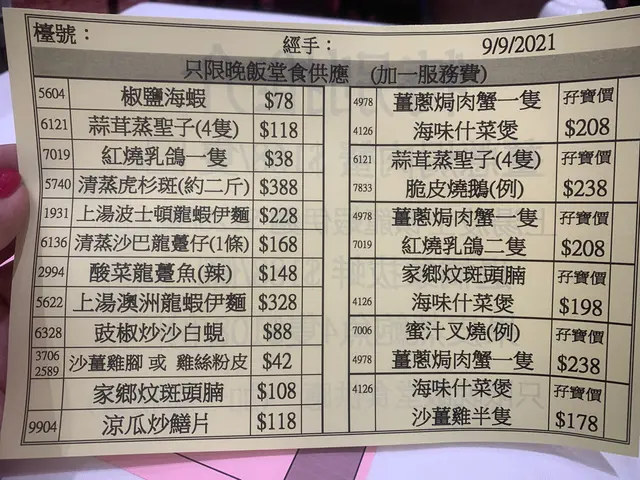 檯號： 經手： 9/9/2021
只限晚飯堂食供應 (加一服務費)
5604 椒鹽海蝦 $78
6121 蒜茸蒸聖子(4隻) $118
7019 紅燒乳鴿一隻 $38
5740 清蒸虎杉斑(約二斤) $388
1931 上湯波士頓龍蝦伊麵 $228
6136 清蒸沙巴龍躉仔(1條) $168
2994 酸菜龍躉魚(辣) $148
5622 上湯澳洲龍蝦伊麵 $328
6328 豉椒炒沙白蜆 $88
3706 2589 沙薑雞腳 或 雞絲粉皮 $42
家鄉炆斑頭腩 $108
9904 涼瓜炒鱔片 $118
4978 薑蔥焗肉蟹一隻 孖寶價
4126 海味什菜煲 $208
6121 蒜茸蒸聖子(4隻) 孖寶價
7833 脆皮燒鵝(例) $238
4978 薑蔥焗肉蟹一隻 孖寶價
7019 紅燒乳鴿二隻 $208
家鄉炆斑頭腩 孖寶價
4126 海味什菜煲 $198
7006 蜜汁叉燒(例) 孖寶價
4978 薑蔥焗肉蟹一隻 $238
4126 海味什菜煲 孖寶價
沙薑雞半隻 $178